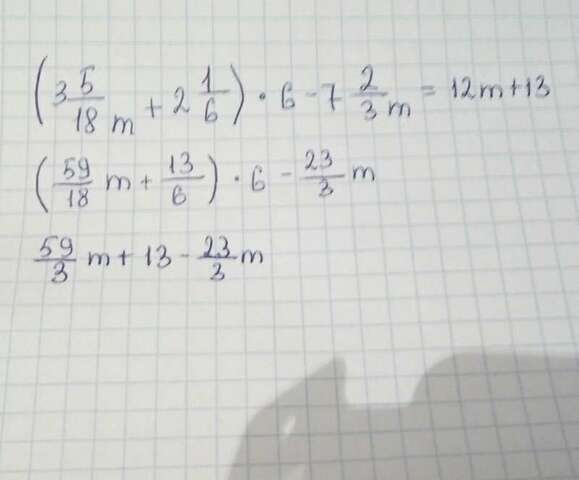 (3 5/18 m + 2 1/6) · 6 - 7 2/3 m = 12m+13
(59/18 m + 13/6) · 6 - 23/3 m
59/3 m + 13 - 23/3 m